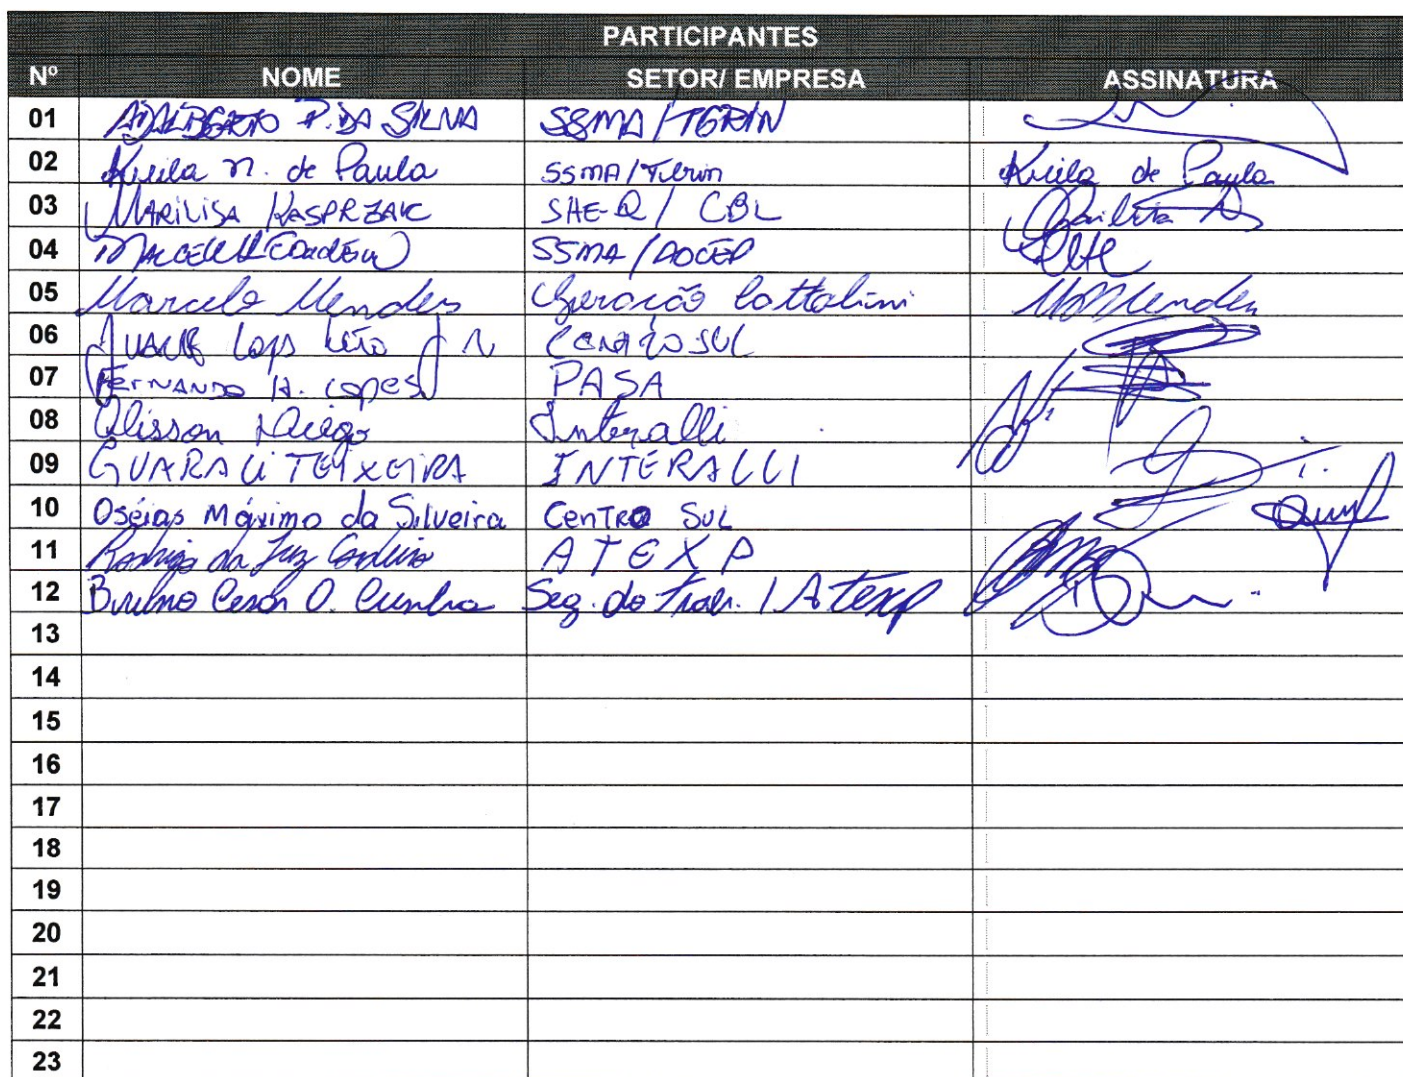 PARTICIPANTES
Nº NOME SETOR/ EMPRESA ASSINATURA
01 ADALBERTO P. DA SILVA SSMA / TERIN
02 Kieila n. de Paula SSMA / Terin Kieila de Paula
03 MARILISA KASPRZAK SHE-Q / CBL
04 SSMA / ROCEP
05 Marcelo Mendes Geração Cattalini MMendes
06 Lops Leão Jr CENTRO SUL
07 FERNANDO H. LOPES PASA
08 Alisson Diego Interalli
09 GUARACI TEIXEIRA INTERALLI
10 Oséias Máximo da Silveira CENTRO SUL
11 Rodrigo da Luz Cordeiro ATEXP
12 Bruno Cesar O. Cunha Seg. do Trab. / Atexp
13
14
15
16
17
18
19
20
21
22
23